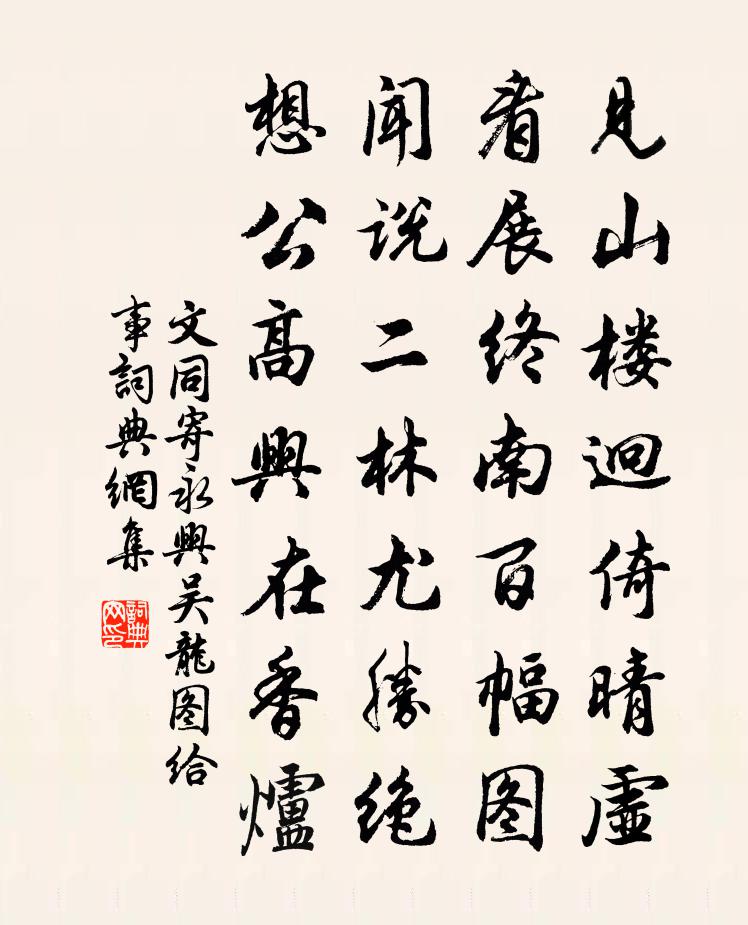 見山楼迥倚晴虚
看展终南百幅图
闻说二林尤勝绝
想公高興在香爐
文同寄永興吴龍图给
事詞典網集
詞典网印